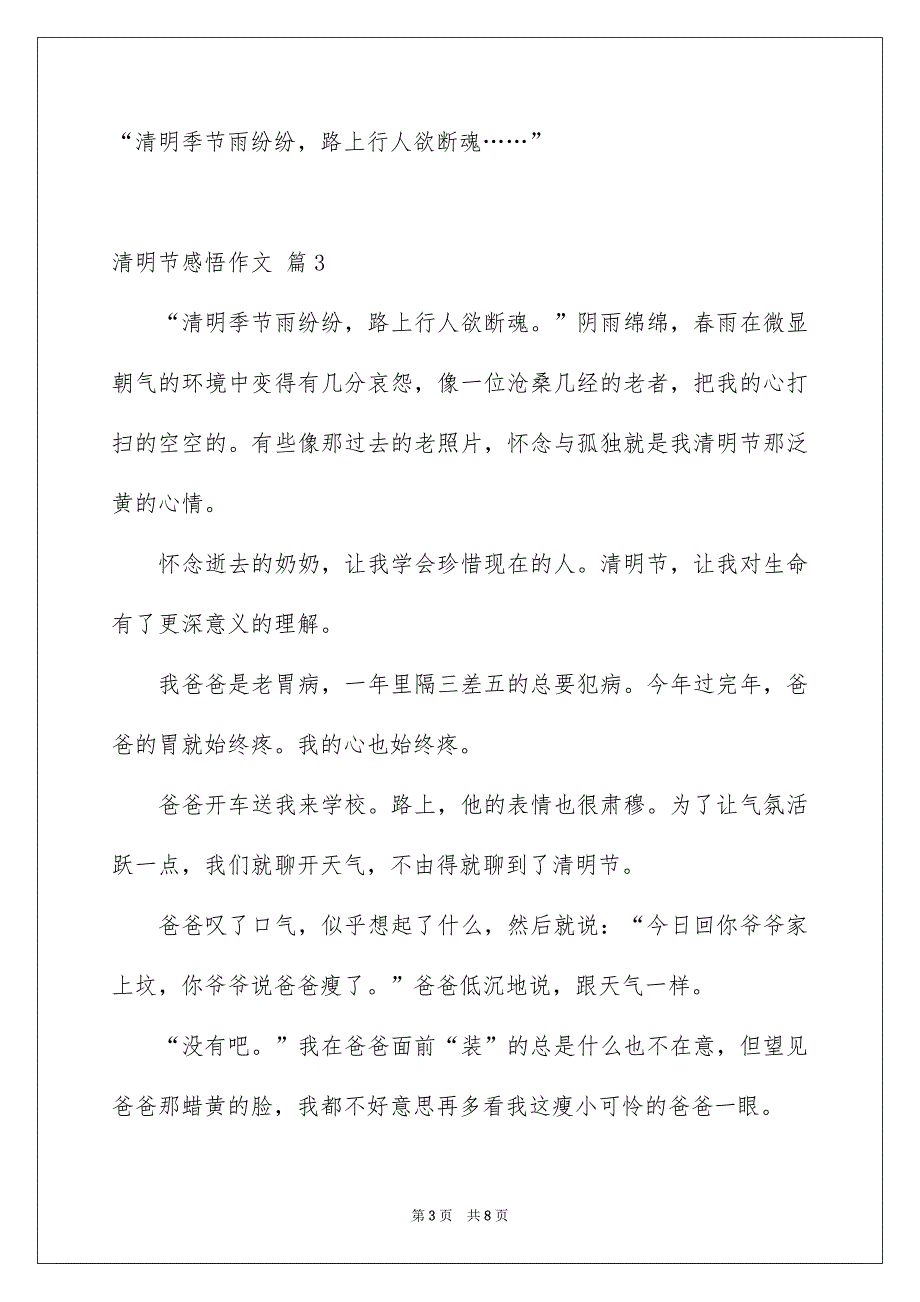 “清明季节雨纷纷，路上行人欲断魂……”
清明节感悟作文 篇3
“清明季节雨纷纷，路上行人欲断魂。”阴雨绵绵，春雨在微显
朝气的环境中变得有几分哀怨，像一位沧桑几经的老者，把我的心打
扫的空空的。有些像那过去的老照片，怀念与孤独就是我清明节那泛
黄的心情。
怀念逝去的奶奶，让我学会珍惜现在的人。清明节，让我对生命
有了更深意义的理解。
我爸爸是老胃病，一年里隔三差五的总要犯病。今年过完年，爸
爸的胃就始终疼。我的心也始终疼。
爸爸开车送我来学校。路上，他的表情也很肃穆。为了让气氛活
跃一点，我们就聊开天气，不由得就聊到了清明节。
爸爸叹了口气，似乎想起了什么，然后就说：“今日回你爷爷家
上坟，你爷爷说爸爸瘦了。”爸爸低沉地说，跟天气一样。
“没有吧。”我在爸爸面前“装”的总是什么也不在意，但望见
爸爸那蜡黄的脸，我都不好意思再多看我这瘦小可怜的爸爸一眼。
第3页 共8页